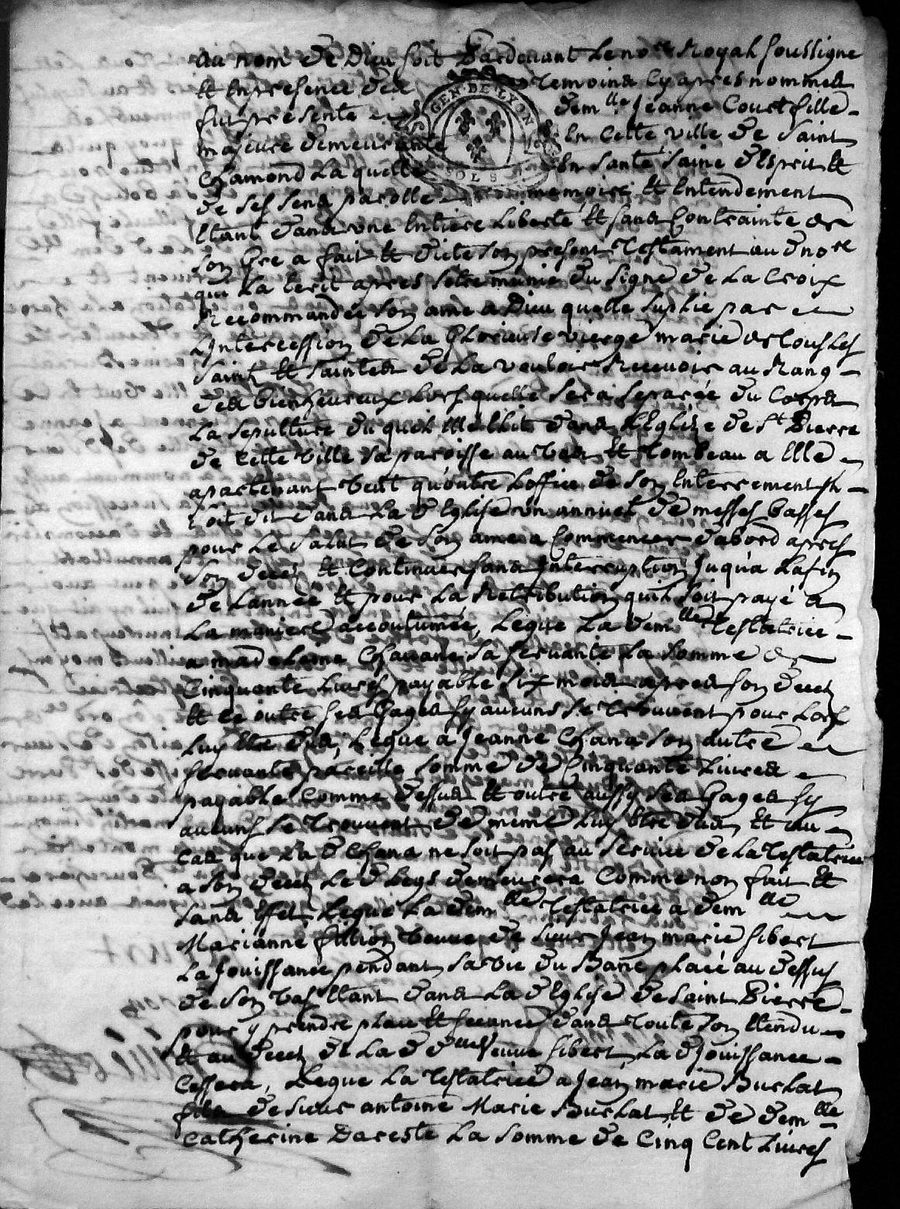 Au nom de Dieu soit Pardevant Le no.re Royal soussigne
Et En presence des temoins cy apres nommes
GEN · DE LYON
SOLS
fut presente dem.lle Jeanne Couet fille
majeure demeurante En cette ville de Saint
Chamond Laquelle En santé saine d'Esprit Et
de ses sens parolle memoire Et Entendement
Etant dans une Entiere Liberté Et sans Contrainte de
son Gre a fait Et dicté son present Testament au d no.re
qui La Ecrit apres s'etre munie du signe de La Croix
Recommandé son ame a Dieu quelle suplie par
L'Intercession de La Glorieuse vierge marie de tous Les
saints Et saintes de La vouloir Recevoir au Rang
des bienheureux Lors quelle sera separée du Corps
La sepulture du quel Elle Elit dans L'Eglise de S.t Pierre
de cette ville sa paroisse au vas Et tombeau a Elle
apartenant veut qu'outre L'office de son Enterrement
soit dit dans La d Eglise un annuel de messes basses
pour Le salut de son ame a Commencer d'abord apres
son deces Et Continuer sans Interruption Jusqu'a La fin
de L'année Et pour La Retribution quil soit payé a
La maniere accoutumée, Legue La dem.lle Testatrice
a madelaine Chavane sa servante La somme de
Cinquante Livres payable six mois apres son deces
Et ce outre ses Gages sy aucuns se trouvent pour Lors
Luy Etre dus, Legue a Jeanne Chana son autre
servante pareille somme de Cinquante Livres
payable Comme dessus Et outre aussy ses Gages sy
aucuns se trouvent de meme Luy Etre dus Et au
Cas que La d Chana ne soit pas au service de La Testatrice
a son deces Le d Legs demeurera Comme non fait Et
sans Effet Legue La dem.lle Testatrice a dem.lle
Marianne fillion veuve de sieur Jean marie sibert
La Jouissance pendant sa vie du Banc placé au dessus
de son vas Etant dans La d Eglise de Saint Pierre
pour y prendre place Et seance dans toute son Etendu
Et au deces de La d d.lle veuve sibert, La d Jouissance
Cessera, Legue La Testatrice a Jean marie Buclat
fils de sieur antoine Marie Buclat Et de dem.lle
Catherine Dareste La somme de Cinq Cent Livres